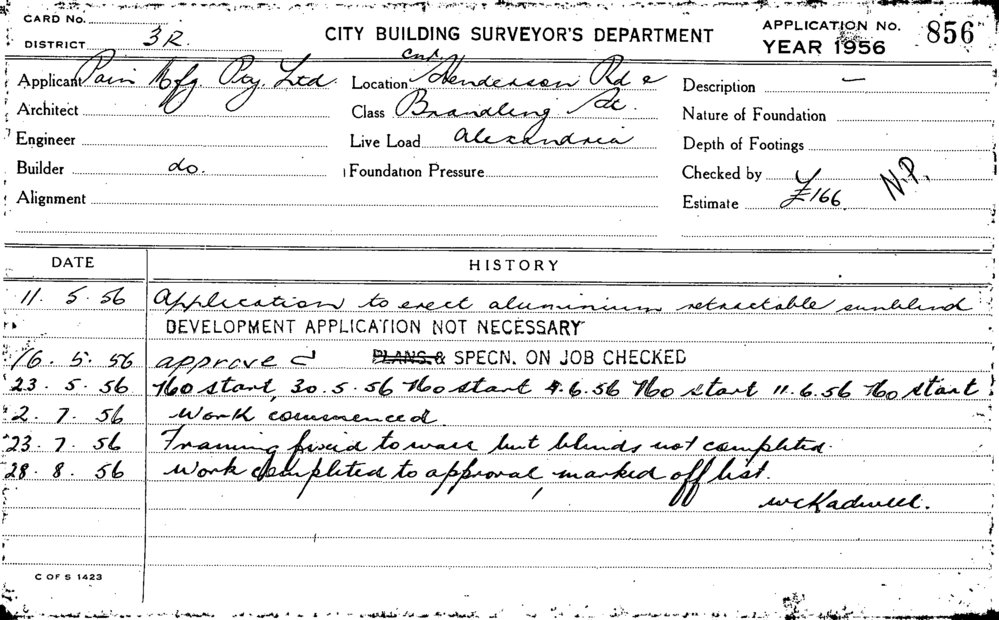 CARD No.
DISTRICT 3R.
CITY BUILDING SURVEYOR'S DEPARTMENT
APPLICATION No. 856
YEAR 1956
Applicant Pain Mfg. Pty. Ltd.
Architect
Engineer
Builder do.
Alignment
Location cnr. Henderson Rd &
Class Brandling St.
Live Load Alexandria
Foundation Pressure
Description —
Nature of Foundation
Depth of Footings
Checked by
Estimate £166 N.P.
DATE HISTORY
11. 5. 56 Application to erect aluminium retractable sunblind
DEVELOPMENT APPLICATION NOT NECESSARY
16. 5. 56 approved PLANS & SPECN. ON JOB CHECKED
23. 5. 56 No start, 30. 5. 56 No start 4. 6. 56 No start 11. 6. 56 No start
2. 7. 56 Work commenced.
23. 7. 56 Framing fixed to wall but blinds not completed.
28. 8. 56 Work completed to approval, marked off list.
C OF S 1423